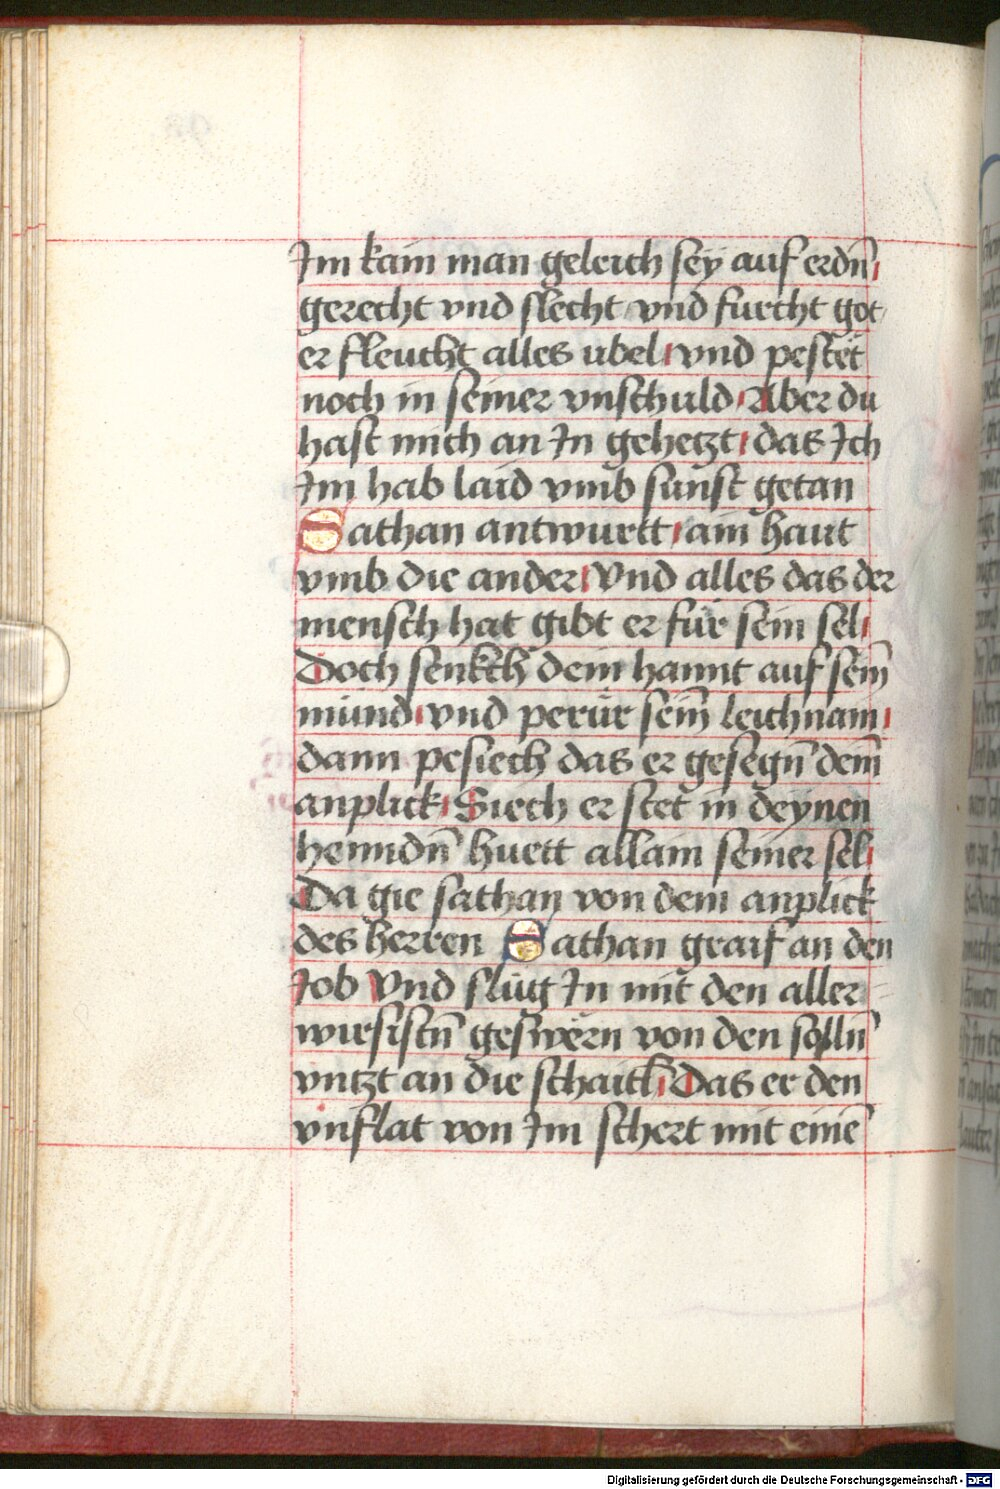 Im kain man geleich sey auf erdn̄
gerecht vnd slecht vnd furcht got
er fleucht alles ubel vnd pestet
noch in seiner vnschuld Aber du
hast mich an In gehetzt das Ich
Im hab laid vmb sunst getan
Sathan antwurtt ain haut
vmb die ander Vnd alles das der
mensch hat gibt er für sein sel
Doch senkch dein hannt auf sein̄
mund vnd perür sein̄ leichnam
dann pesiech das er gesegn̄ dein̄
anplick Siech er stet in deynen
henndn̄ huett allain seiner sel
Da gie sathan von dem anplick
des herren Sathan graif an den
Job Vnd slug In mit den aller
wirsistn̄ geswern von den solln̄
vntzt an die schaitl Das er den
vnflat von Im schert mit eine͞
Digitalisierung gefördert durch die Deutsche Forschungsgemeinschaft - DFG